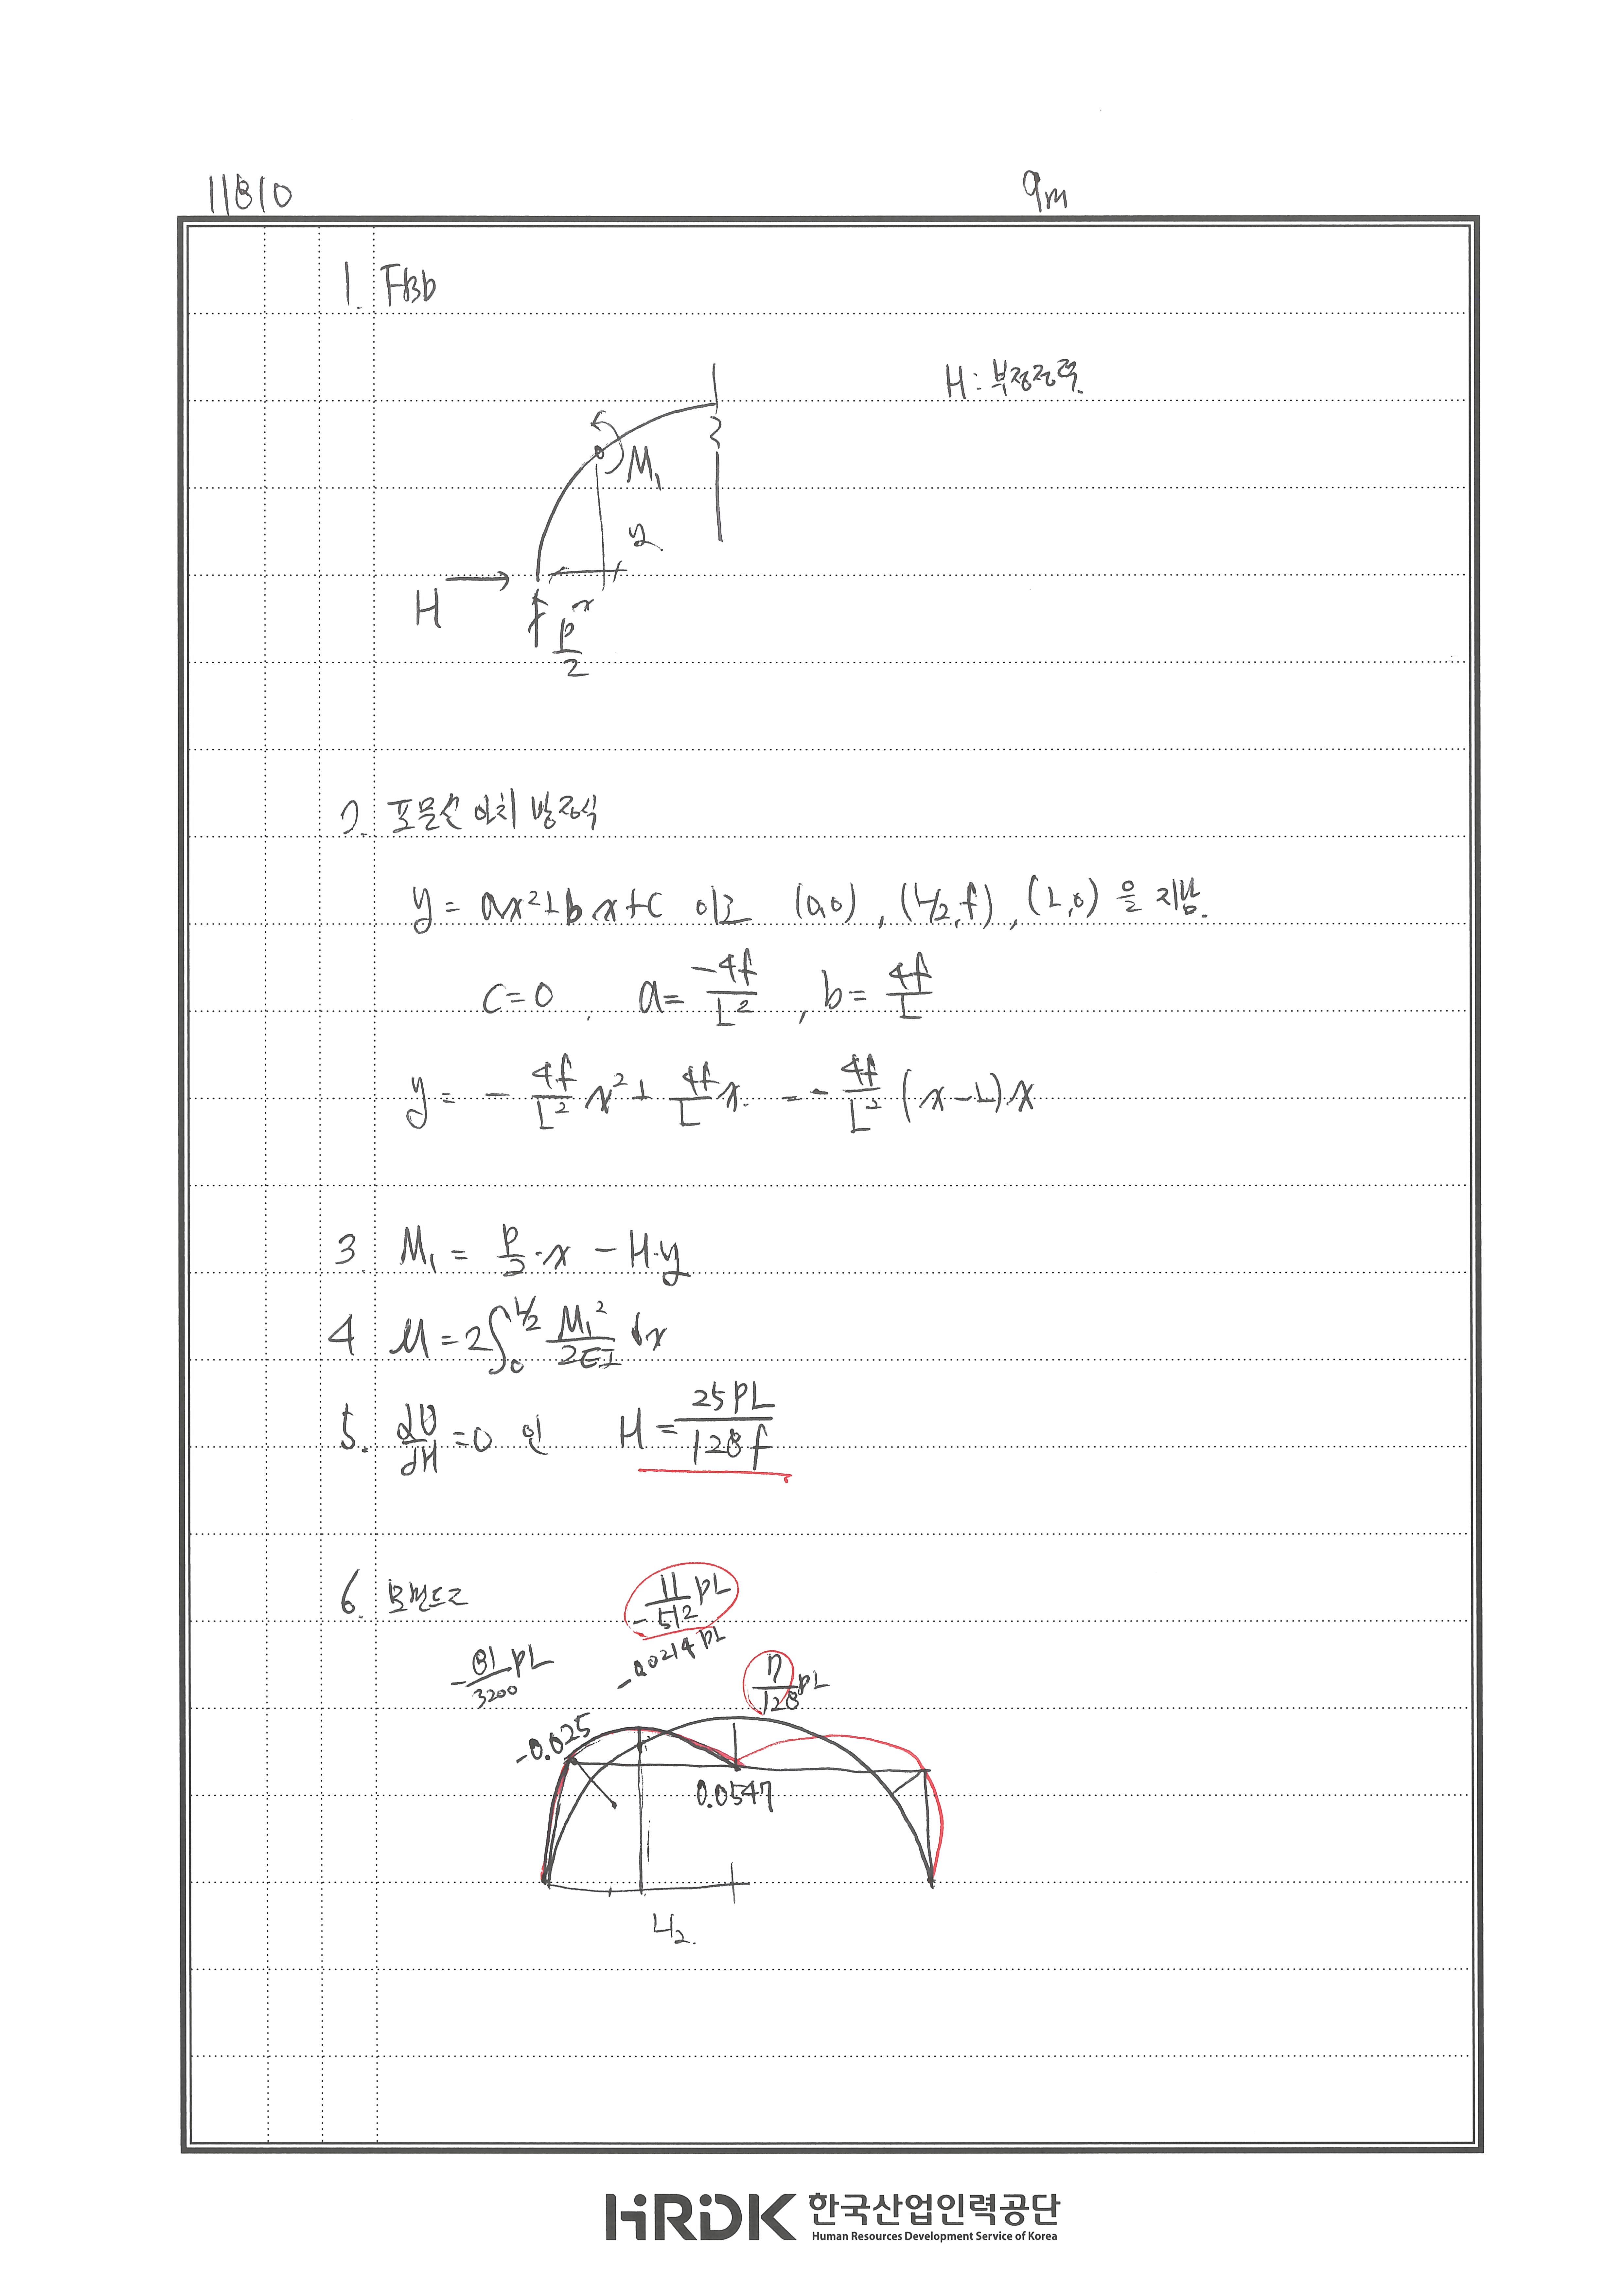 11810
9m
1. FBD
H : 부정정력.
M₁
y
H
x
P/2
2. 포물선 아치 방정식
y = ax²+bx+c 이고 (0,0), (L/2,f), (L,0) 을 지남.
c=0, a= -4f/L², b= 4f/L
y = - 4f/L² x² + 4f/L x = - 4f/L² (x-L)x
3. M₁ = P/2·x - H·y
4. U = 2∫₀^(L/2) M₁²/2EI dx
5. dU/dH =0 인 H = 25PL/128f
6. 모멘트도
- 11/512 PL
-0.0214 PL
- 81/3200 PL
7/128 PL
-0.025
0.0547
L/2.
HRDK 한국산업인력공단
Human Resources Development Service of Korea